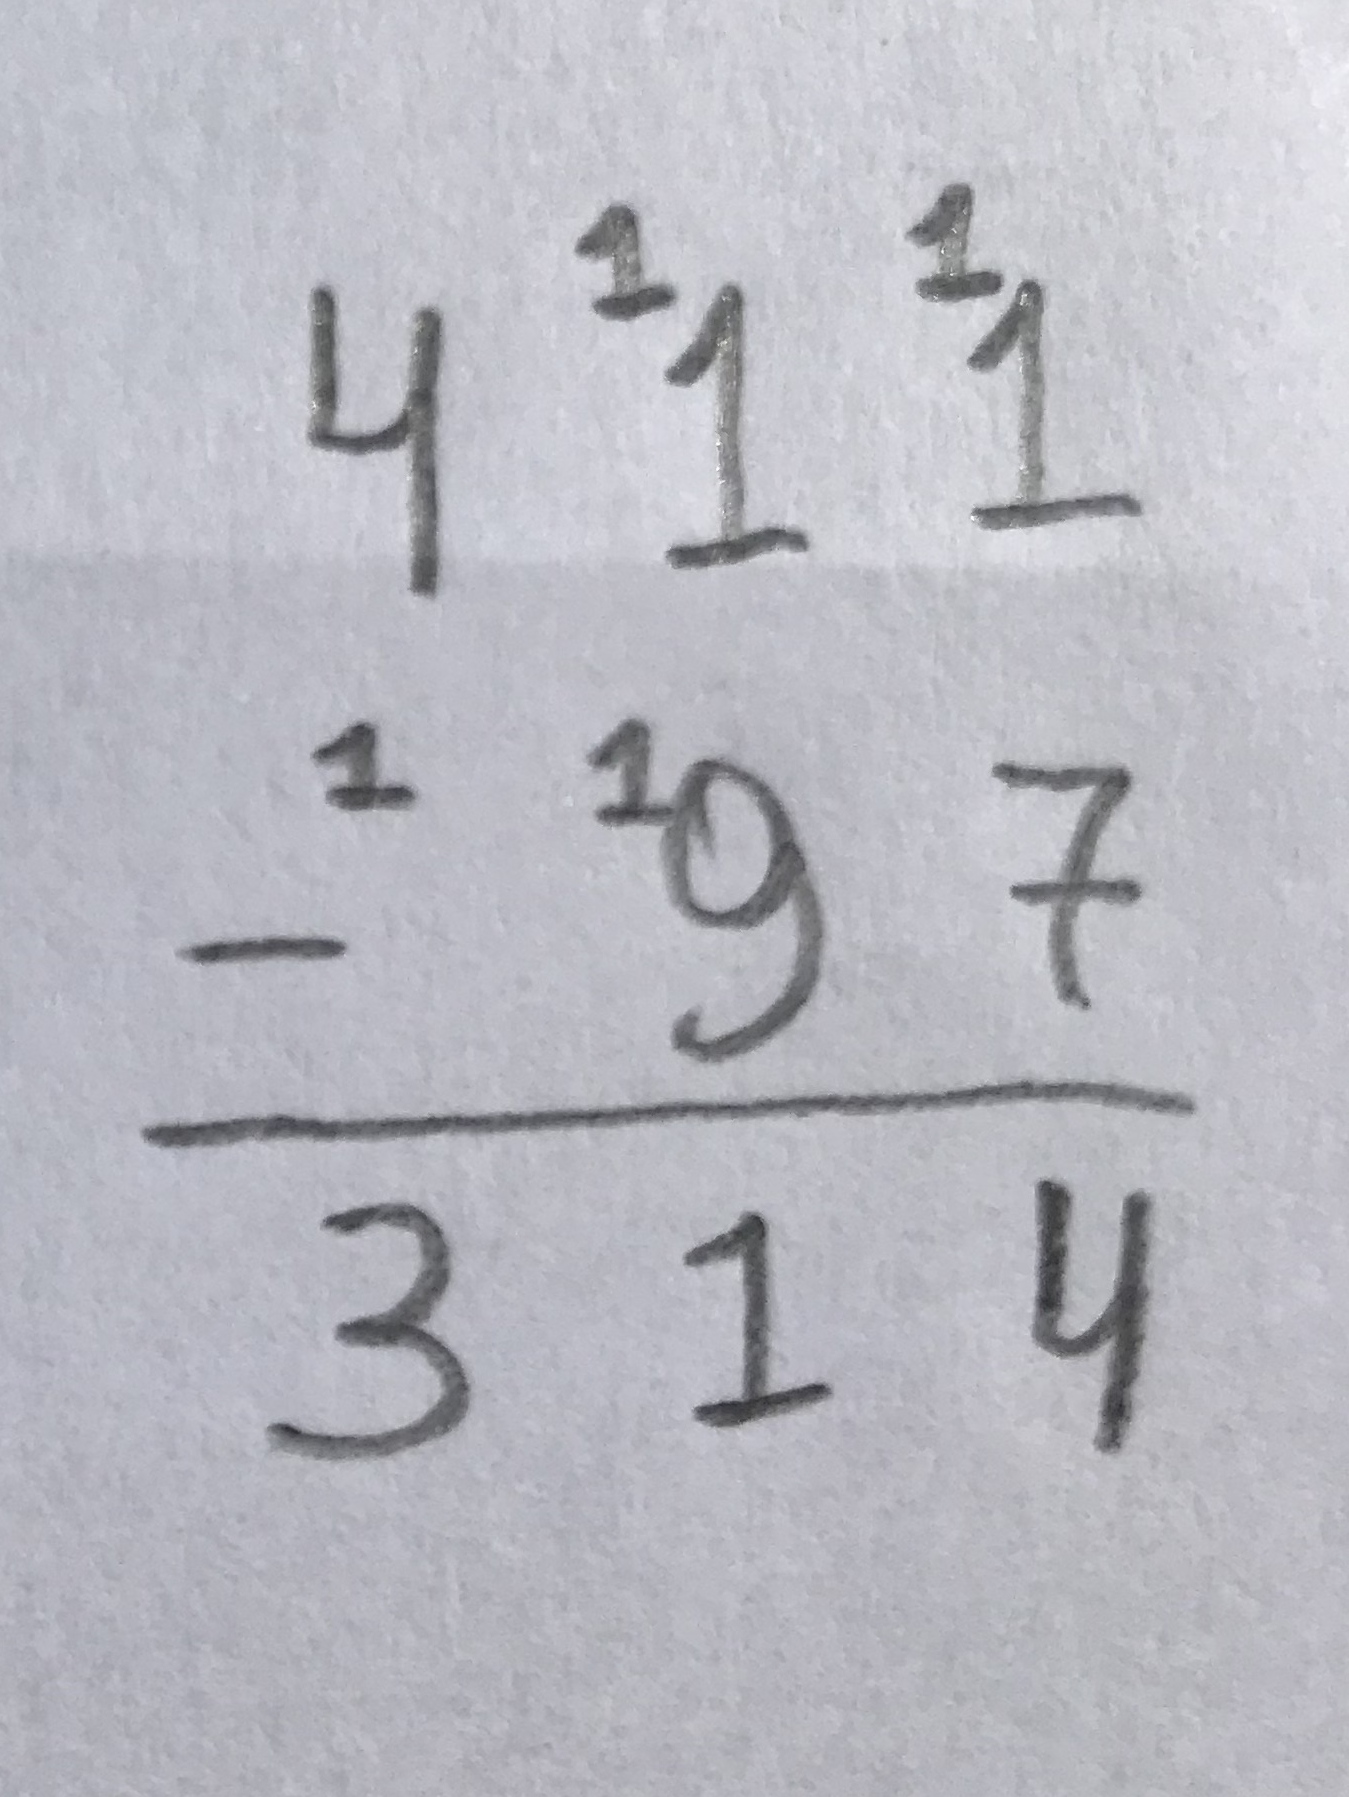 4 ¹1 ¹1
- ¹ ¹9 7
3 1 4